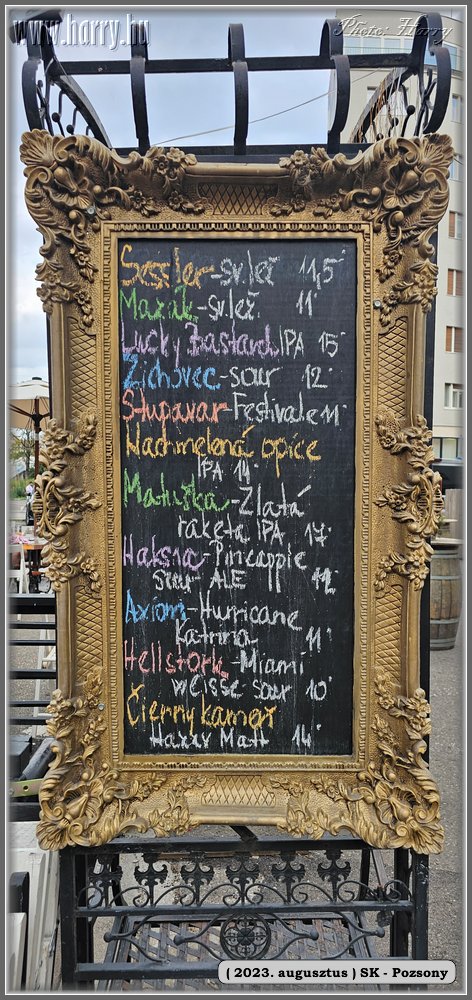 www.harry.hu
Photo: Harry
Sessler-svlež 11,5°
Mazák-svlež. 11°
Lucky Bastard IPA 15°
Zichovec-sour 12°
Stupavar-Festivale 11°
Nachmelená opice
IPA 14°
Matuška-Zlatá
raketa IPA 17°
Haksna-Pineapple
sour-ALE 12°
Axiom-Hurricane
Katrina 11°
Hellstork-Miami
weisse sour 10°
Čierny kameň
14°
( 2023. augusztus ) SK - Pozsony